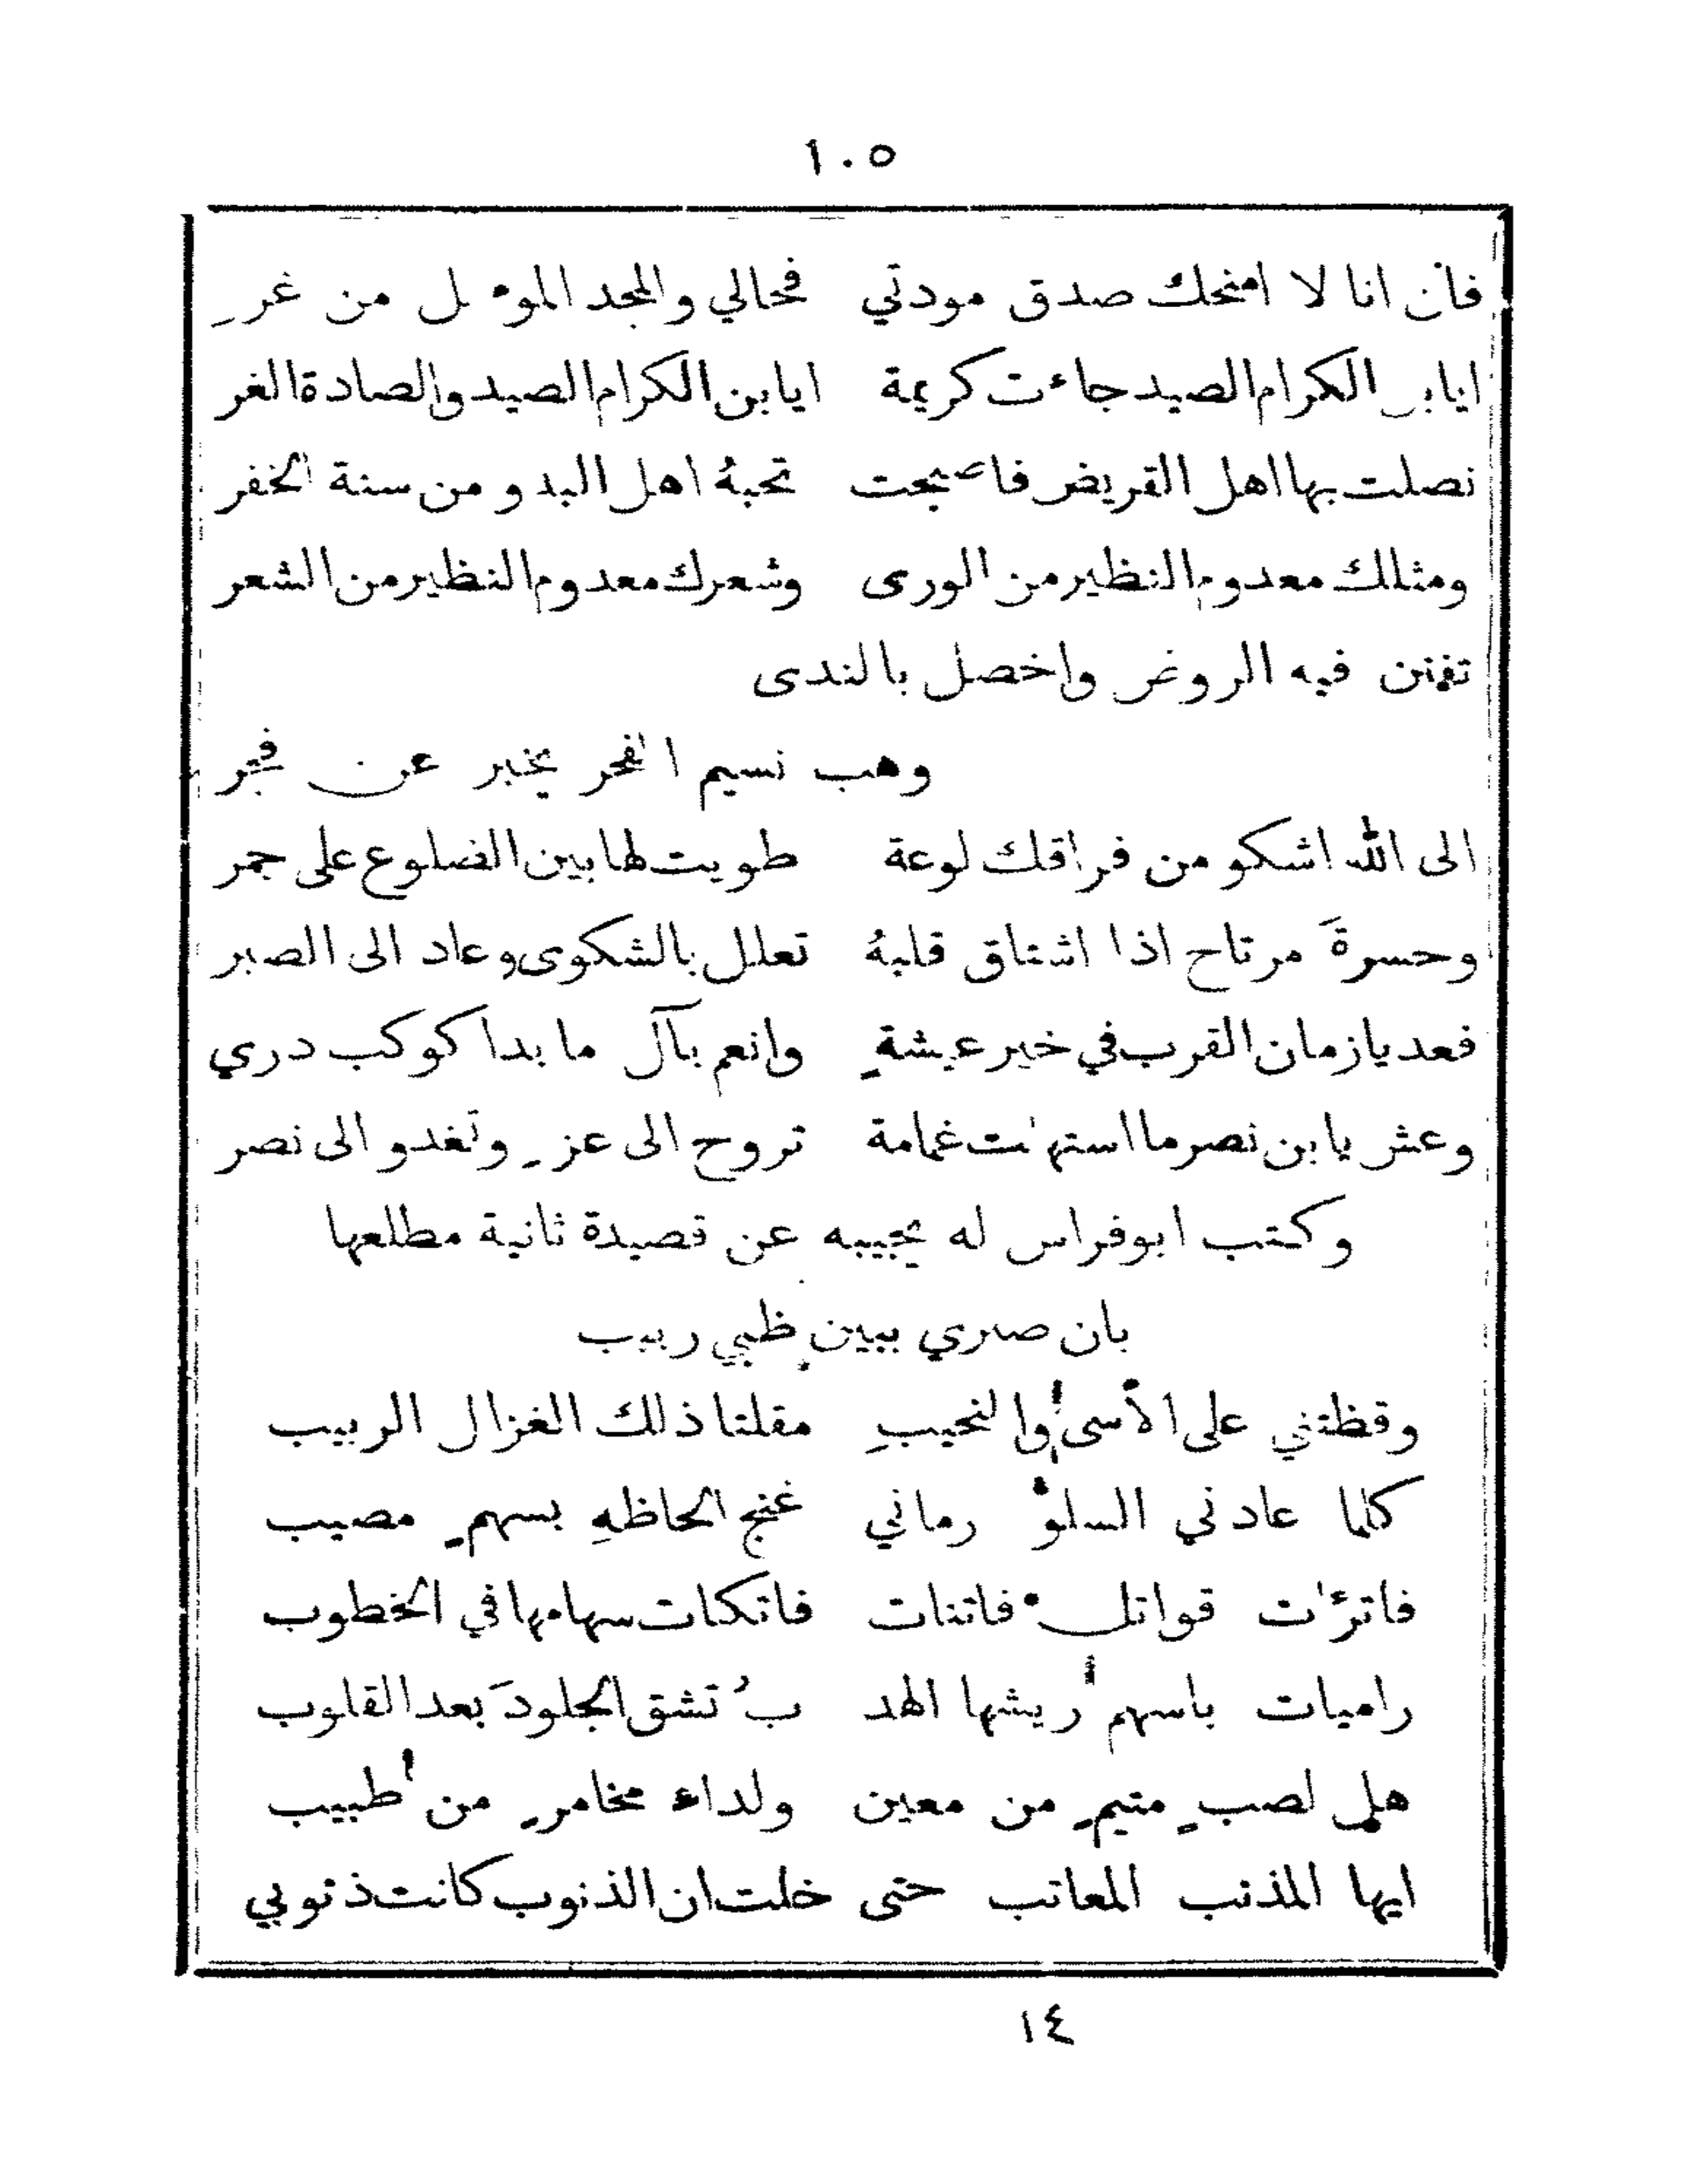 ١٠٥
فان انا لا امنحك صدق مودتي فحالي والمجد الموءمل من غر
ايابن الكرام الصيد جاءت كريمة ايابن الكرام الصيد والصادة الغر
نصلت بها اهل القريض فاصبحت تحبهُ اهل البدو من سنة الخفر
ومثلك معدوم النظير من الورى وشعرك معدوم النظير من الشعر
تفنن فيه الروض واخضل بالندى
وهب نسيم الفجر يخبر عن فجر
الى الله اشكو من فراقك لوعة طويت لها بين الضلوع على جمر
وحسرةَ مرتاح اذا اشتاق قلبهُ تعلل بالشكوى وعاد الى الصبر
فعد يا زمان القرب في خير عيشةٍ وانعم بآل ما بدا كوكب دري
وعش يا بن نصر ما استهلت غمامة تروح الى عزٍ وتغدو الى نصر
وكتب ابو فراس له يجيبه عن قصيدة ثانية مطلعها
بان صبري ببين ظبي ربيب
وقظتني على الأسى والنحيبِ مقلتا ذلك الغزال الربيب
كلما عادني السلوُّ رماني غنج الحاظهِ بسهمٍ مصيب
فاترات قواتل فاتنات فاتكات سهامها في الخطوب
راميات باسهم ريشها الهد بُ تشق الجلودَ بعد القلوب
هل لصبٍ متيمٍ من معين ولداء مخامرٍ من طبيب
ايها المذنب المعاتب حتى خلت ان الذنوب كانت ذنوبي
١٤